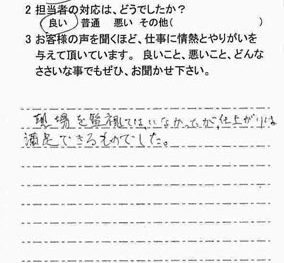 2 担当者の対応は、どうでしたか?
良い 普通 悪い その他( )
3 お客様の声を聞くほど、仕事に情熱とやりがいを
与えて頂いています。良いこと、悪いこと、どんな
ささいな事でもぜひ、お聞かせ下さい。
現場を監視してはいなかったが、仕上がりは
満足できるものでした。